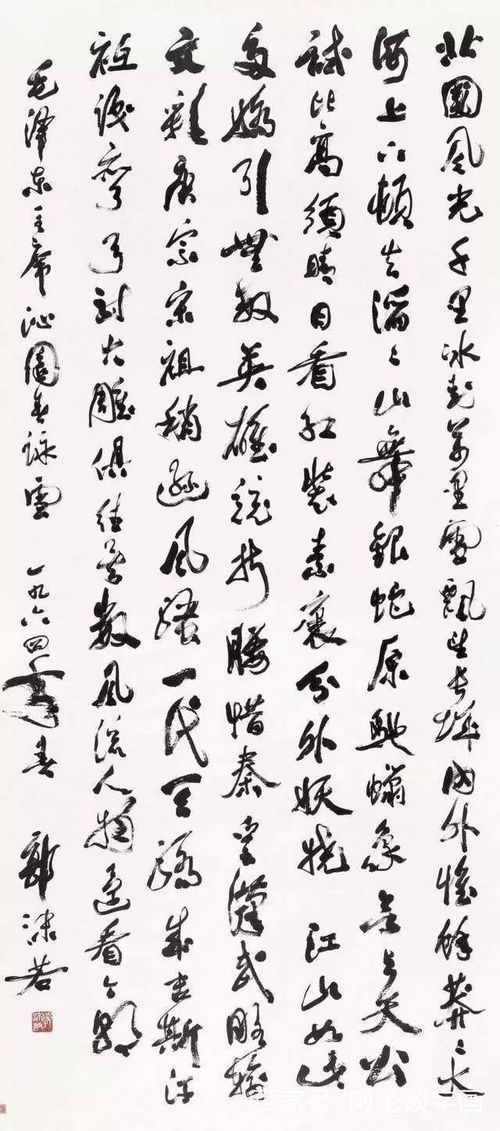 北國風光千里冰封萬里雪飄望長城內外惟餘莽〻大
河上下頓失滔〻山舞銀蛇原馳蠟象欲與天公
試比高須晴日看紅裝素裹分外妖嬈 江山如此
多嬌引無數英雄競折腰惜秦皇漢武略輸
文彩唐宗宋祖稍遜風騷一代天驕成吉斯汗
祇識彎弓射大雕俱往矣數風流人物還看今朝
毛澤東主席沁園春詠雪 一九六四年春 郭沫若
百家号/阿毛谈字画